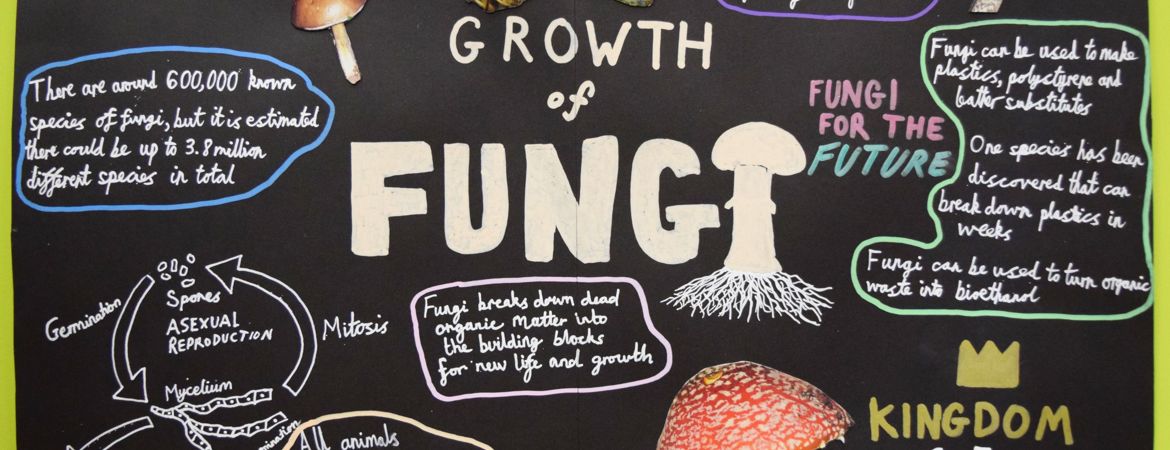 GROWTH
of
FUNGI
There are around 600,000 known
species of fungi, but it is estimated
there could be up to 3.8 million
different species in total
FUNGI
FOR THE
FUTURE
Fungi can be used to make
plastics, polystyrene and
batter substitutes
One species has been
discovered that can
break down plastics in
weeks
Fungi can be used to turn organic
waste into bioethanol
Germination
Spores
ASEXUAL
REPRODUCTION
Mitosis
Mycelium
Fungi breaks down dead
organic matter into
the building blocks
for new life and growth
All animals
KINGDOM